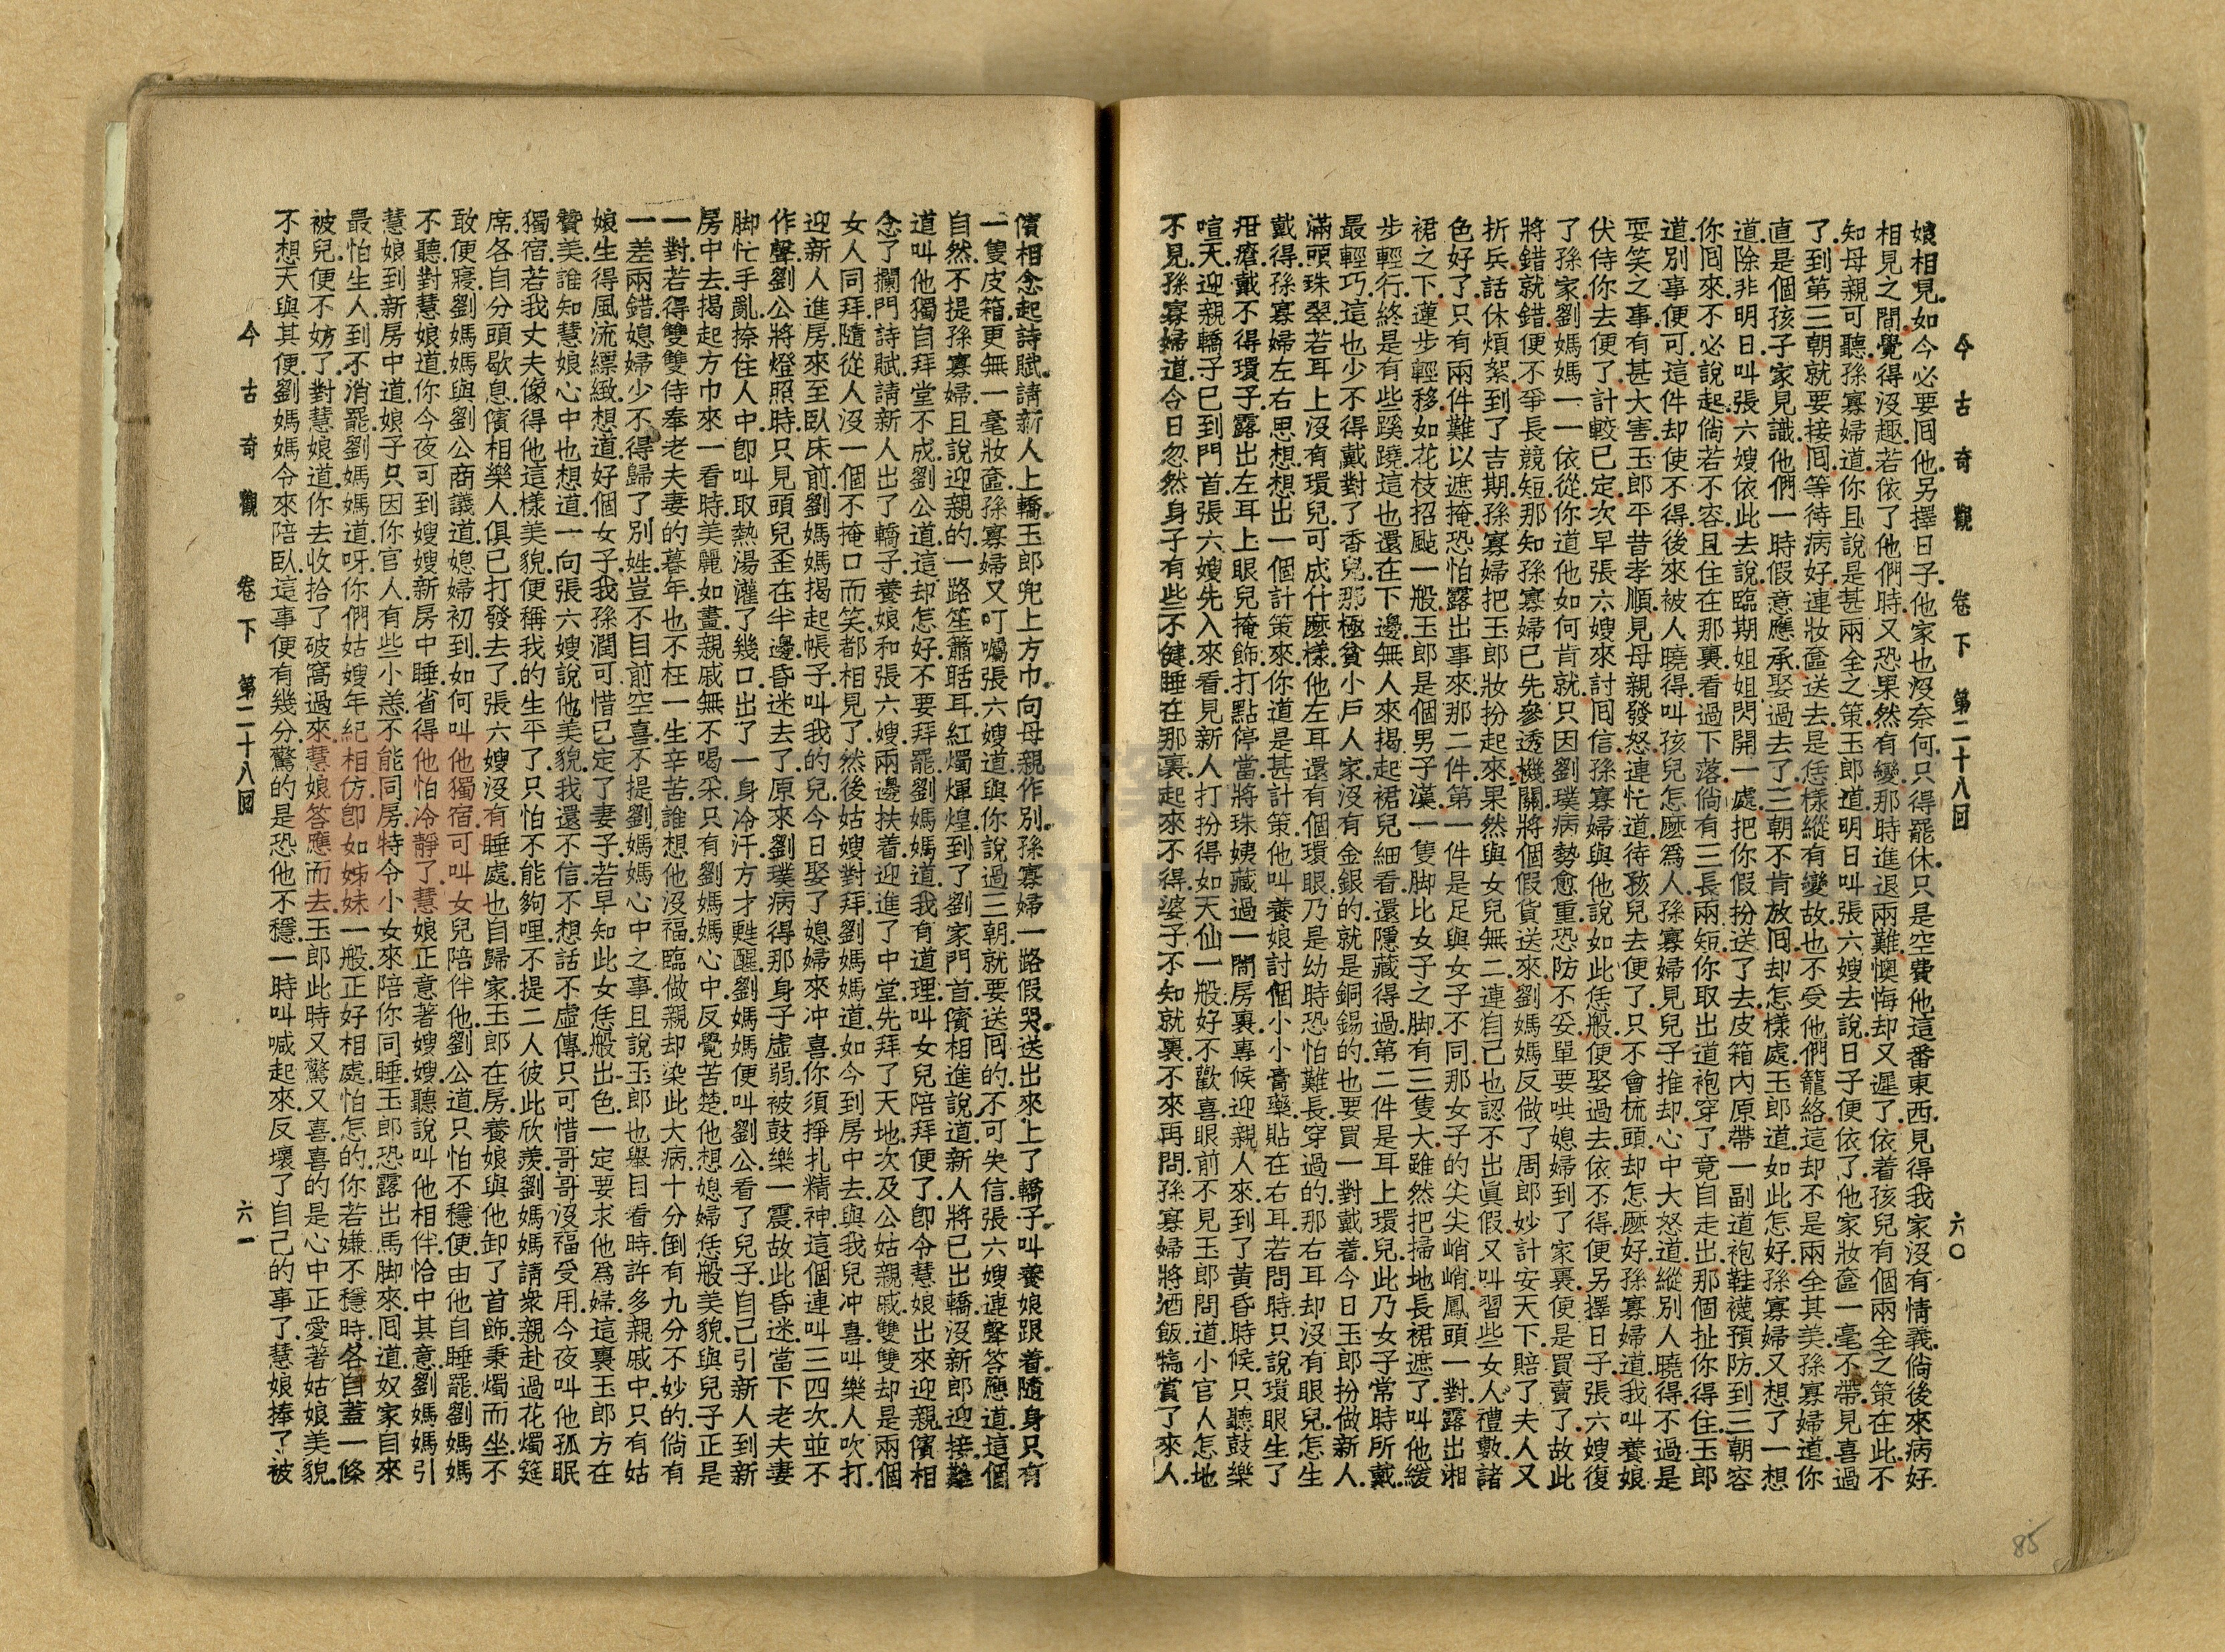 今古奇觀 卷下 第二十八回 六〇
娘相見.如今必要囘他.另擇日子.他家也沒奈何.只得罷休.只是空費他這番東西.見得我家沒有情義.倘後來病好
相見之間.覺得沒趣.若依了他們時.又恐果然有變.那時進退兩難.懊悔却又遲了.依着孩兒有個兩全之策在此.不
知母親可聽.孫寡婦道.你且說是甚兩全之策.玉郎道.明日叫張六嫂去說.日子便依了.他家妝奩一毫不帶.見喜過
了.到第三朝就要接囘.等待病好.連妝奩送去.是恁樣縱有變故.也不受他們籠絡.這却不是兩全其美.孫寡婦道.你
直是個孩子家見識.他們一時假意應承娶過去了.三朝不肯放囘.却怎樣處.玉郎道.如此怎好.孫寡婦又想了一想
道.除非明日叫張六嫂依此去說.臨期姐姐閃開一處.把你假扮送了去.皮箱內原帶一副道袍鞋襪.預防到三朝容
你囘來.不必說起.倘若不容.且住在那裏.看過下落.倘有三長兩短.你取出道袍穿了.竟自走出.那個扯你得住.玉郎
道.別事便可.這件却使不得.後來被人曉得.叫孩兒怎麼爲人.孫寡婦見兒子推却.心中大怒道.縱別人曉得.不過是
耍笑之事.有甚大害.玉郎平昔孝順.見母親發怒.連忙道.待孩兒去便了.只不會梳頭.却怎麼好.孫寡婦道.我叫養娘
伏侍你去便了.計較已定.次早張六嫂來討囘信.孫寡婦與他說如此恁般.便娶過去.依不得.便另擇日子.張六嫂復
了孫家.劉媽媽一一依從.你道他如何肯就.只因劉璞病勢愈重.恐防不妥.單要哄媳婦到了家裏.便是買賣了.故此
將錯就錯.便不爭長競短.那知孫寡婦已先參透機關.將個假貨送來.劉媽媽反做了周郎妙計安天下.賠了夫人又
折兵.話休煩絮.到了吉期.孫寡婦把玉郎妝扮起來.果然與女兒無二.連自己也認不出眞假.又叫習些女人禮數.諸
色好了.只有兩件難以遮掩.恐怕露出事來.那二件.第一件是足與女子不同.那女子的尖尖峭峭.鳳頭一對.露出湘
裙之下.蓮步輕移.如花枝招颭一般.玉郎是個男子漢.一隻脚比女子之脚有三隻大.雖然把掃地長裙遮了.叫他緩
步輕行.終是有些蹊蹺.這也還在下邊.無人來揭起裙兒細看.還隱藏得過.第二件是耳上環兒.此乃女子常時所戴.
最輕巧.這也少不得戴對了香兒.那極貧小戶人家.沒有金銀的.就是銅錫的.也要買一對戴着.今日玉郎扮做新人.
滿頭珠翠.若耳上沒有環兒.可成什麼樣.他左耳還有個環眼.乃是幼時恐怕難長穿過的.那右耳却沒有眼兒.怎生
戴得.孫寡婦左右思想.想出一個計策來.你道是甚計策.他叫養娘討個小小膏藥.貼在右耳.若問時.只說環眼生了
疳瘡.戴不得環子.露出左耳上眼兒掩飾.打點停當.將珠姨藏過一間房裏.專候迎親人來.到了黃昏時候.只聽鼓樂
喧天.迎親轎子已到門首.張六嫂先入來.看見新人打扮得如天仙一般.好不歡喜.眼前不見玉郎.問道.小官人怎地
不見.孫寡婦道.今日忽然身子有些不健.睡在那裏.起來不得.婆子不知就裏.不來再問.孫寡婦將酒飯犒賞了來人.
儐相念起詩賦.請新人上轎.玉郎兜上方巾.向母親作別.孫寡婦一路假哭.送出來.上了轎子.叫養娘跟着.隨身只有
一隻皮箱.更無一毫妝奩.孫寡婦又叮囑張六嫂道.與你說過三朝就要送囘的.不可失信.張六嫂連聲答應道.這個
自然.不提孫寡婦.且說迎親的.一路笙簫聒耳.紅燭煇煌.到了劉家門首.儐相進說道.新人將已出轎.沒新郎迎接.難
道叫他獨自拜堂不成.劉公道.這却怎好.不要拜罷.劉媽媽道.我有道理.叫女兒陪拜便了.卽令慧娘出來迎親.儐相
念了攔門詩賦.請新人出了轎子.養娘和張六嫂兩邊扶着.迎進了中堂.先拜了天地.次及公姑親戚.雙雙却是兩個
女人同拜.隨從人沒一個不掩口而笑.都相見了.然後姑嫂對拜.劉媽媽道.如今到房中去.與我兒冲喜.叫樂人吹打.
迎新人進房來.至臥床前.劉媽媽揭起帳子.叫我的兒.今日娶了媳婦來冲喜.你須掙扎精神.這個連叫三四次.並不
作聲.劉公將燈照時.只見頭兒歪在半邊.昏迷去了.原來劉璞病得那身子虛弱.被鼓樂一震.故此昏迷.當下老夫妻
脚忙手亂.捺住人中.卽叫取熱湯灌了幾口.出了一身冷汗.方才甦醒.劉媽媽便叫劉公看了兒子.自己引新人到新
房中去.揭起方巾來一看時.美麗如畫.親戚無不喝采.只有劉媽媽心中反覺苦楚.他想媳婦恁般美貌.與兒子正是
一對.若得雙雙侍奉老夫妻的暮年.也不枉一生辛苦.誰想他沒福.臨做親却染此大病.十分倒有九分不妙的.倘有
一差兩錯.媳婦少不得歸了別姓.豈不目前空喜.不提劉媽媽心中之事.且說玉郎也舉目看時.許多親戚中.只有姑
娘生得風流縹緻.想道.好個女子.我孫潤可惜已定了妻子.若早知此女恁般出色.一定要求他爲婦.這裏玉郎方在
贊美.誰知慧娘心中也想道.一向張六嫂說他美貌.我還不信.不想話不虛傳.只可惜哥哥沒福受用.今夜叫他孤眠
獨宿.若我丈夫像得他這樣美貌.便稱我的生平了.只怕不能夠哩.不提二人彼此欣羨.劉媽媽請衆親赴過花燭筵
席.各自分頭歇息.儐相樂人.俱已打發去了.張六嫂沒有睡處.也自歸家.玉郎在房.養娘與他卸了首飾.秉燭而坐.不
敢便寢.劉媽媽與劉公商議道.媳婦初到.如何叫他獨宿.可叫女兒陪伴他.劉公道.只怕不穩便.由他自睡罷.劉媽媽
不聽.對慧娘道.你今夜可到嫂嫂新房中睡.省得他怕冷靜了.慧娘正意著嫂嫂.聽說叫他相伴.恰中其意.劉媽媽引
慧娘到新房中道.娘子.只因你官人有些小恙.不能同房.特令小女來陪你同睡.玉郎恐露出馬脚來.囘道.奴家自來
最怕生人.到不消罷.劉媽媽道.呀.你們姑嫂年紀相仿.卽如姊妹一般.正好相處.怕怎的.你若嫌不穩時.各自蓋一條
被兒便不妨了.對慧娘道.你去收拾了破窩過來.慧娘答應而去.玉郎此時又驚又喜.喜的是心中正愛著姑娘美貌.
不想天與其便.劉媽媽令來陪臥.這事便有幾分.驚的是恐他不穩.一時叫喊起來.反壞了自己的事了.慧娘捧了被
今古奇觀 卷下 第二十八回 六一
85